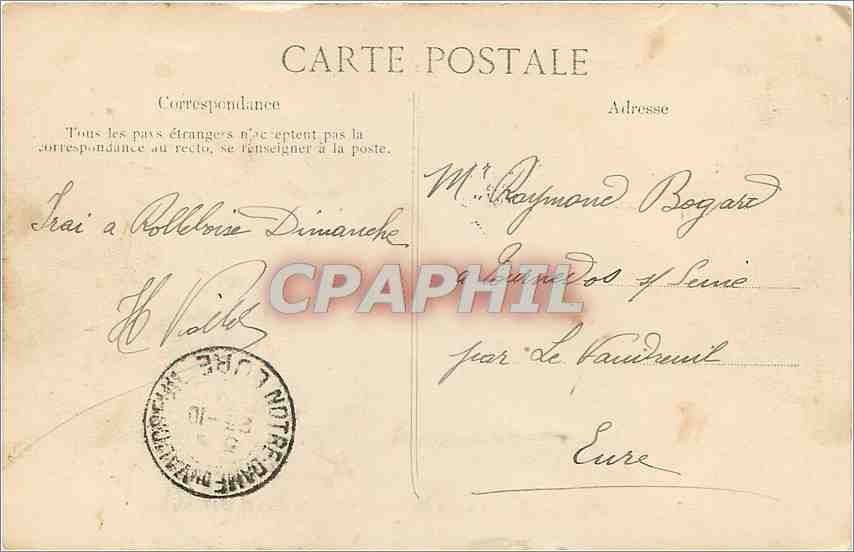 CARTE POSTALE
Correspondance
Tous les pays étrangers n'acceptent pas la
correspondance au recto, se renseigner à la poste.
Irai a Rolleboise Dimanche
H
Adresse
Mr. Raymond Bogard
a Tournedos s/ Seine
par Le Vaudreuil
Eure
CPAPHIL
NOTRE-DAME-DU-VAUDREUIL
EURE